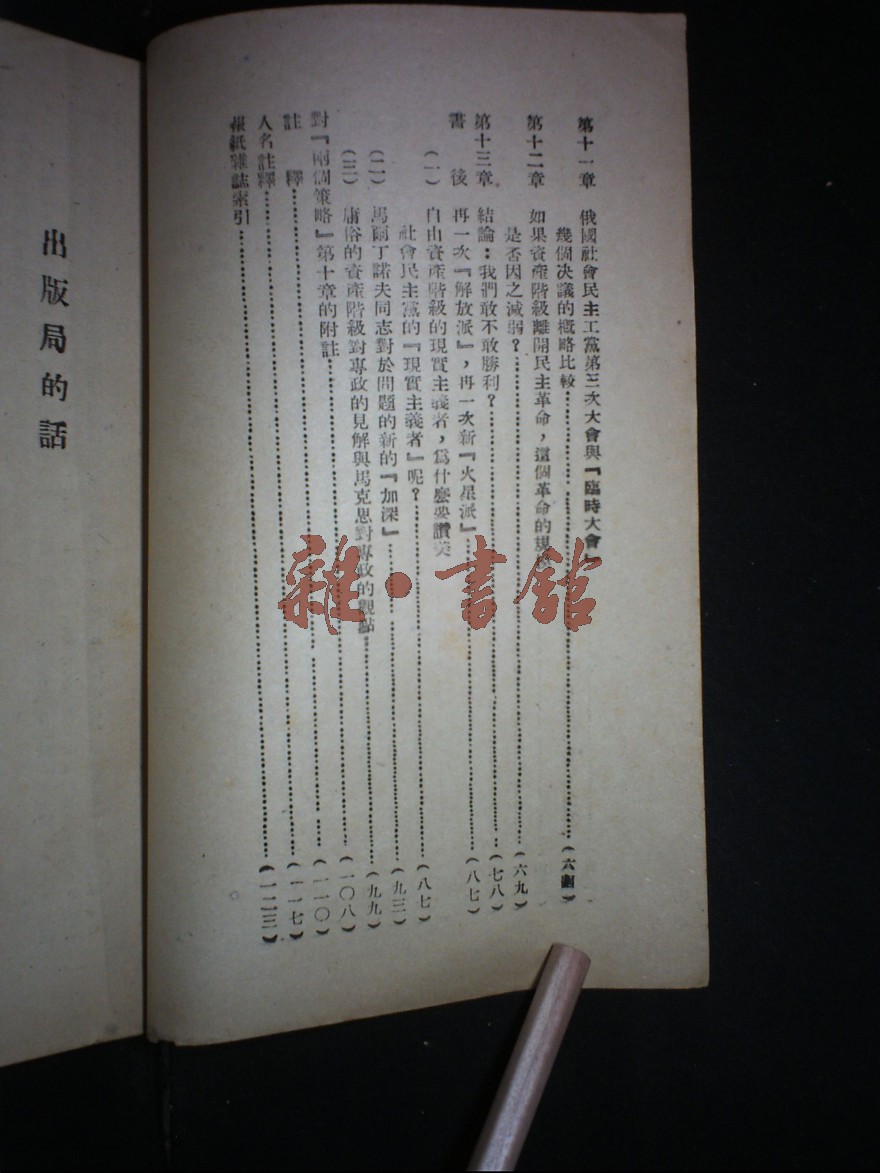 第十一章　俄國社會民主工黨第三次大會與『臨時大會』
幾個決議的概略比較……………………（六四）
第十二章　如果資產階級離開民主革命，這個革命的規模
是否因之減弱？……………………（六九）
第十三章　結論：我們敢不敢勝利？……………………（七八）
書　後　再一次『解放派』，再一次新『火星派』……………………（八七）
（一）　自由資產階級的現實主義者，爲什麼要讚美
社會民主黨的『現實主義者』呢？……………………（八七）
（二）　馬爾丁諾夫同志對於問題的新的『加深』……………………（九三）
（三）　庸俗的資產階級對專政的見解與馬克思對專政的觀點……………………（九九）
對『兩個策略』第十章的附註……………………（一〇八）
註　釋……………………（一一〇）
人名註釋……………………（一一七）
報紙雜誌索引……………………（一二三）
出版局的話
雜·書館